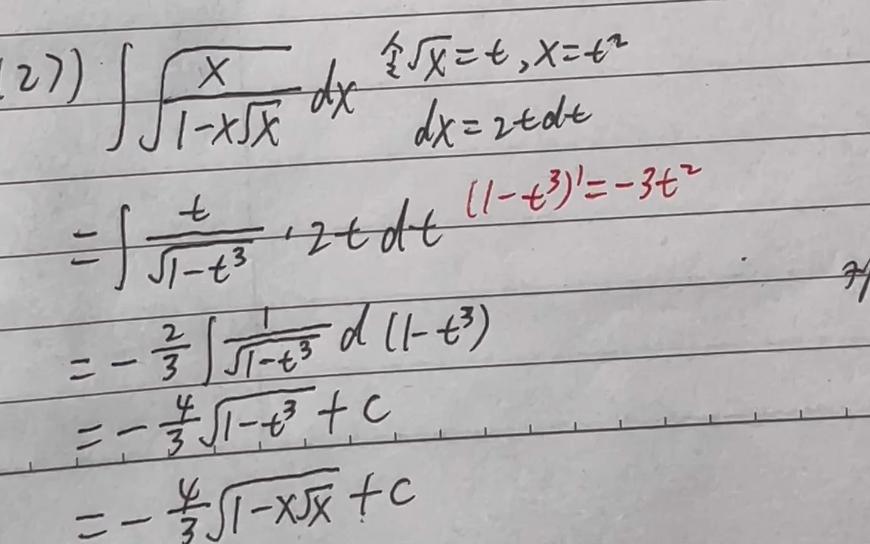 (27) ∫√(x/(1-x√x)) dx 令√x=t, x=t²
dx=2tdt
=∫ t/√(1-t³) · 2t dt (1-t³)'=-3t²
=-2/3 ∫ 1/√(1-t³) d(1-t³)
=-4/3 √(1-t³) + C
=-4/3 √(1-x√x) + C